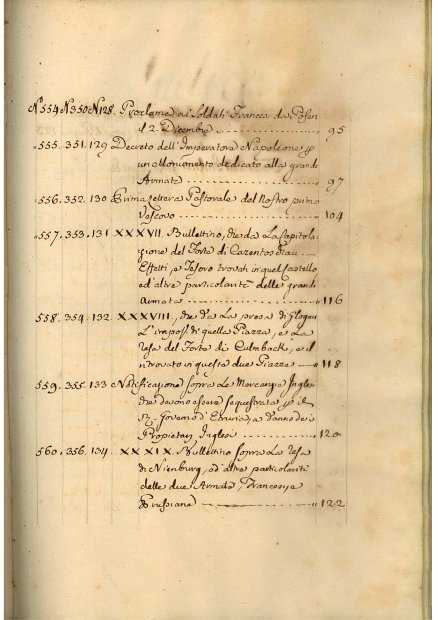 Nº 554 Nº 350 Nº 128. Proclama ai Soldati Francesi da Posen
il 2. Dicembre .......... " 95
" 555. 351. 129 Decreto dell'Imperatore Napoleone p
un Monumento dedicato alla grand
Armata .......... " 97
" 556. 352. 130 Prima Lettera Pastorale del Nostro primo
Vescovo .......... " 104
" 557. 353. 131 XXXVII. Bullettino, che dà La Capitola-
zione del Forte di
Effetti, e Tesoro trovati in quel Castello
ed altre particolarità delle grand
Armata .......... " 116
558. 354. 132. XXXVIII, che dà La presa di Glogau
L'import. di quella Piazza, e La
resa del Forte di Culmback, e il
ritrovato in questa due Piazze .. " 118
559. 355. 133 Notificazione sopra Le Mercanzie Ingles
che devono essere sequestrate p il
Governo d'Etruria, a danno dei
Propietarj Inglesi .......... " 120
560. 356. 134. XXXIX. Bullettino sopra La resa
di Nienburg, ed altre particolarità
delle due Armate, Francese, e
Prussiana .......... " 122